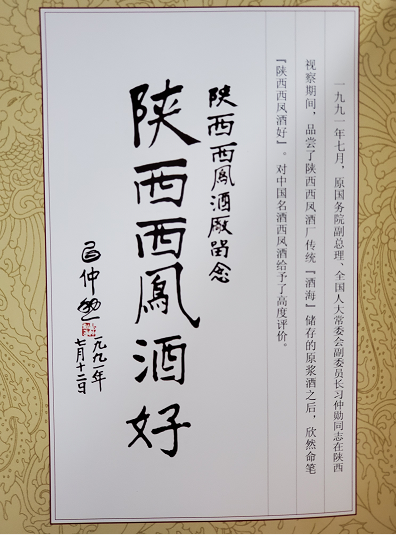 一九九一年七月，原国务院副总理、全国人大常委会副委员长习仲勋同志在陕西
视察期间，品尝了陕西西凤酒厂传统『酒海』储存的原浆酒之后，欣然命笔
『陕西西凤酒好』。对中国名酒西凤酒给予了高度评价。
陕西西鳳酒廠留念
陕西西鳳酒好
习仲勋
一九九一年
七月十二日